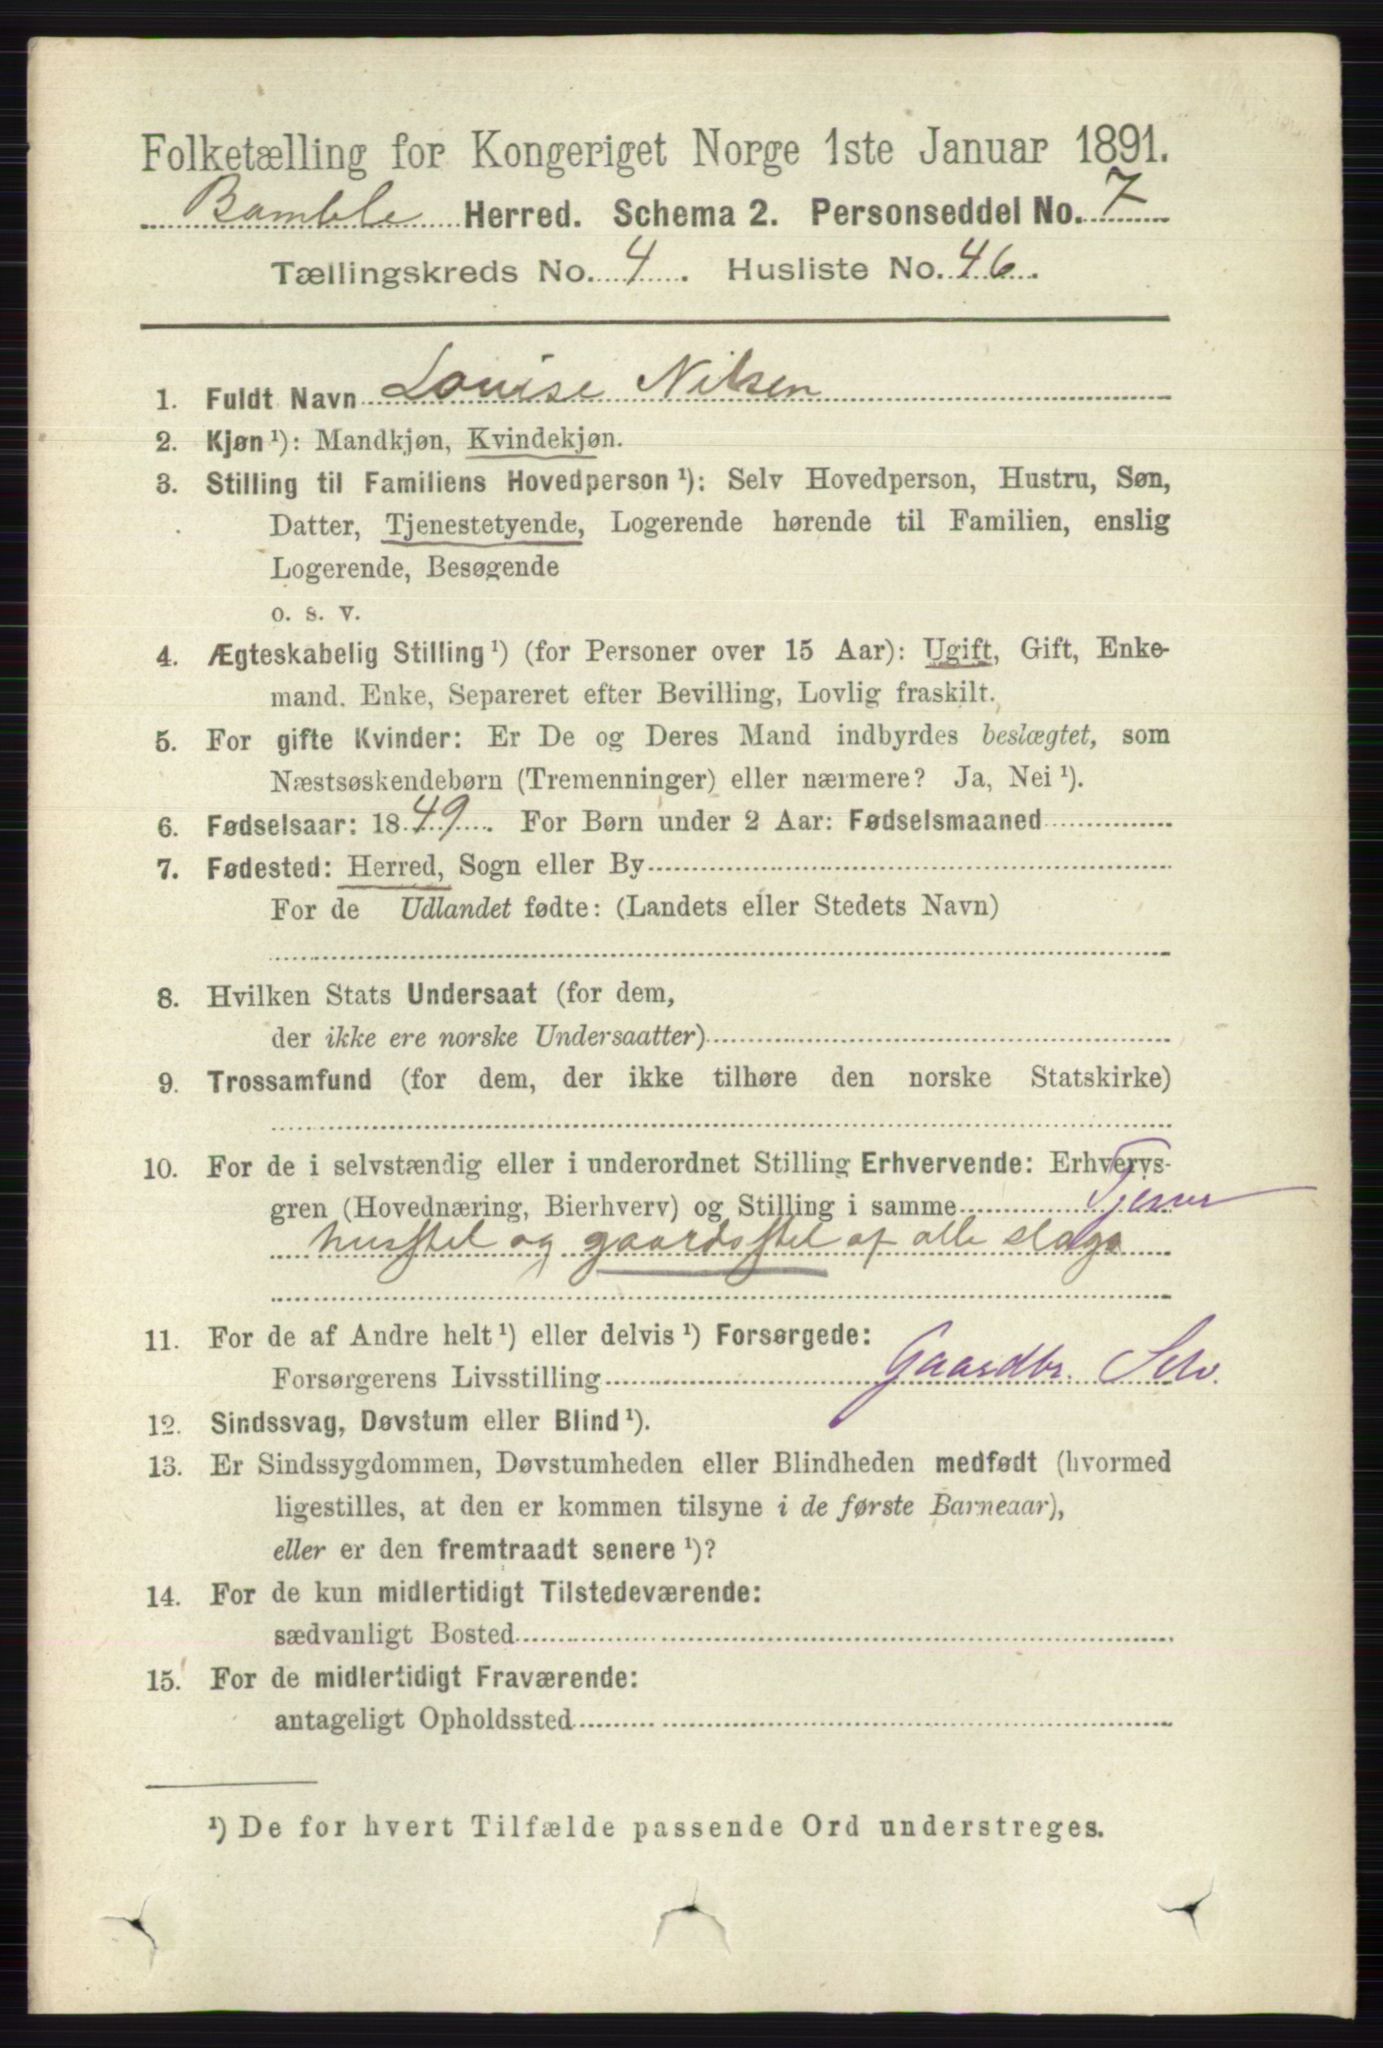 Folketælling for Kongeriget Norge 1ste Januar 1891.
Bamble Herred. Schema 2. Personseddel No. 7
Tællingskreds No. 4. Husliste No. 46.
1. Fuldt Navn Louise Nilsen
2. Kjøn¹): Mandkjøn, Kvindekjøn.
3. Stilling til Familiens Hovedperson¹): Selv Hovedperson, Hustru, Søn,
Datter, Tjenestetyende, Logerende hørende til Familien, enslig
Logerende, Besøgende
o. s. v.
4. Ægteskabelig Stilling¹) (for Personer over 15 Aar): Ugift, Gift, Enke-
mand. Enke, Separeret efter Bevilling, Lovlig fraskilt.
5. For gifte Kvinder: Er De og Deres Mand indbyrdes beslægtet, som
Næstsøskendebørn (Tremenninger) eller nærmere? Ja, Nei¹).
6. Fødselsaar: 1849. For Børn under 2 Aar: Fødselsmaaned
7. Fødested: Herred, Sogn eller By
For de Udlandet fødte: (Landets eller Stedets Navn)
8. Hvilken Stats Undersaat (for dem,
der ikke ere norske Undersaatter)
9. Trossamfund (for dem, der ikke tilhøre den norske Statskirke)
10. For de i selvstændig eller i underordnet Stilling Erhvervende: Erhvervs-
gren (Hovednæring, Bierhverv) og Stilling i samme
husstel og gaardsstel af alle slags
11. For de af Andre helt¹) eller delvis¹) Forsørgede:
Forsørgerens Livsstilling Gaardbr. Selv.
12. Sindssvag, Døvstum eller Blind¹).
13. Er Sindssygdommen, Døvstumheden eller Blindheden medfødt (hvormed
ligestilles, at den er kommen tilsyne i de første Barneaar),
eller er den fremtraadt senere¹)?
14. For de kun midlertidigt Tilstedeværende:
sædvanligt Bosted
15. For de midlertidigt Fraværende:
antageligt Opholdssted
¹) De for hvert Tilfælde passende Ord understreges.